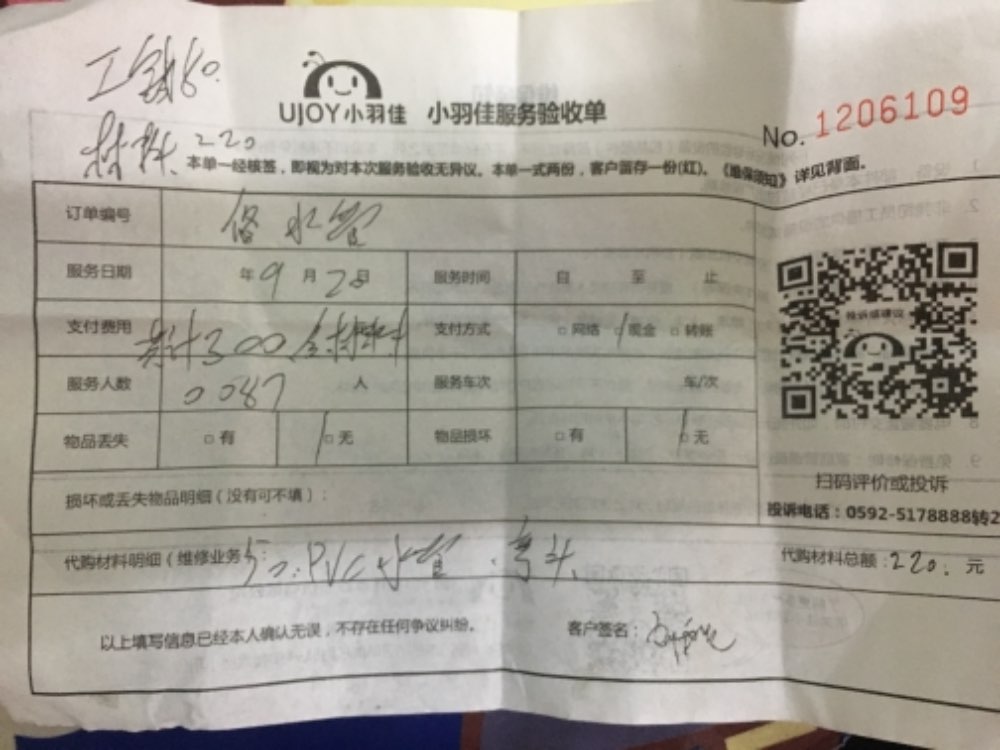 工钱80.
材料.220
UJOY小羽佳 小羽佳服务验收单
No. 1206109
本单一经核签，即视为对本次服务验收无异议。本单一式两份，客户留存一份(红)。《维保须知》详见背面。
订单编号 修水管
服务日期 年9月2日 服务时间 自 至 止
支付费用 共计300含材料 支付方式 □网络 □现金 □转账
服务人数 0087 人 服务车次 车/次
物品丢失 □有 □无 物品损坏 □有 □无
投诉或建议
扫码评价或投诉
损坏或丢失物品明细（没有可不填）：
投诉电话：0592-5178888转2
代购材料明细（维修业务 PVC水管.弯头. 代购材料总额：220.元
以上填写信息已经本人确认无误，不存在任何争议纠纷。 客户签名：